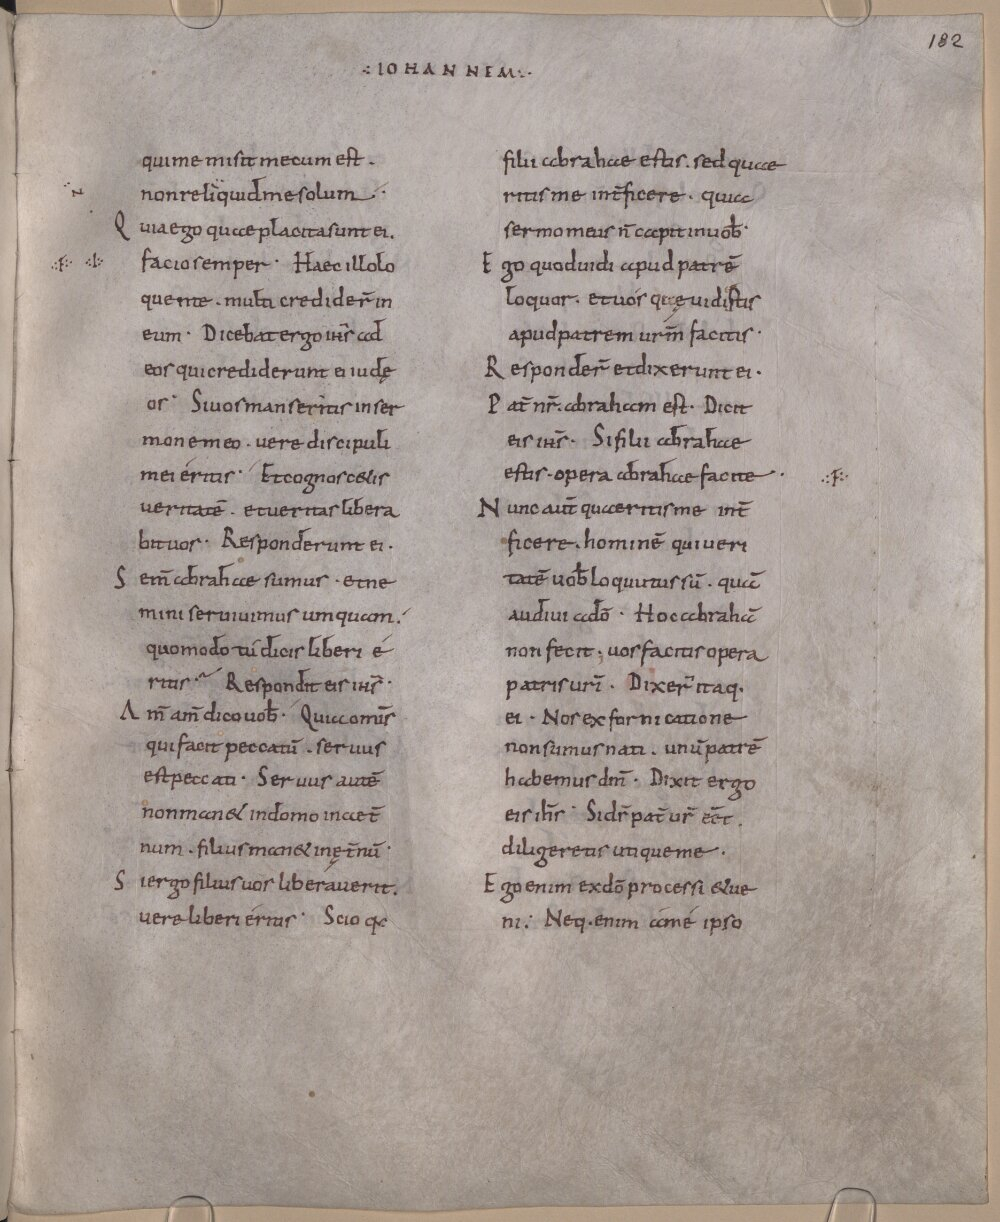 182
:IOHANNEM:
qui me misit mecum est.
non reliquid me solum.
Quia ego quae placita sunt ei.
facio semper. Haec illo lo
quente. multi credider̄ in
eum. Dicebat ergo ih̄s ad
eos qui crediderunt ei iudę
os. Si vos manseritis in ser
mone meo. vere discipuli
mei éritis. Et cognoscetis
veritatē. et veritas libera
bit vos. Responderunt ei.
Sem̄ abrahae sumus. et ne
mini servivimus umquam.
quomodo tú dicis liberi é
ritis. Respondit eis ih̄s.
Am̄ am̄ dico vob̄. Quia omīs
qui facit peccatū. servus
est peccati. Servus autē
non manet in domo in aet̄
num. filius manet in ęt̄nū.
Si ergo filius vos liberáverit.
vere liberi éritis. Scio qa
filii abrahae estis. sed quae
ritis me int̄ficere. quia
sermo meus n̄ capit in vob̄.
Ego quod vidi apud patrē
loquor. et vós quę vidistis
apud patrem vr̄m facitis.
Responder̄ et dixerunt ei.
Pat̄ nr̄. abraham est. Dicit
eis ih̄s. Si filii abrahae
estis. opera abrahae facite.
Nunc aut̄ quaeritis me int̄
ficere. hominē qui veri
tatē vob̄ loquutus sū. quā
audivi a dō. Hoc abrahā
non fecit. vos facitis opera
patris vrī. Dixer̄ itaq.
ei. Nos ex fornicatione
non sumus nati. unū patrē
habemus dm̄. Dixit ergo
eis ih̄s. Si ds̄ pat̄ vr̄ eēt.
diligeretis utique me.
Ego enim ex dō processi et ve
ni. Neq. enim a me ipso